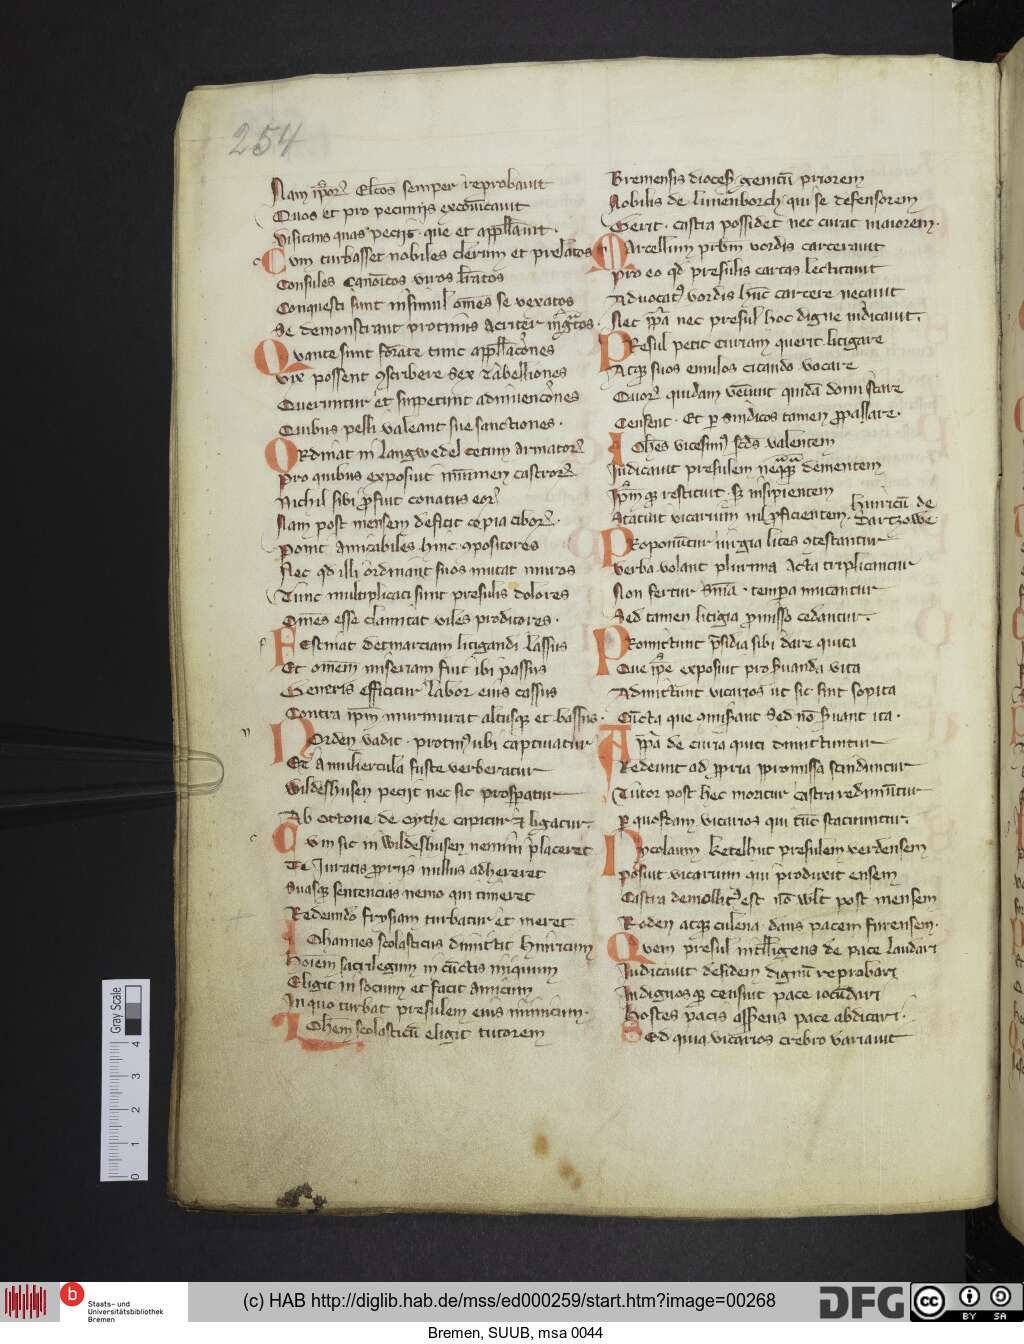 254
Nam ip̄or᷑ Elcōs semper reprobauit
Quos et pro pecunijs excōicauit
visitans quas peciit que et appellauit.
Cum turbasset nobiles clerum et prelatos
Consules Canōicos viros lr̄atos
Conquesti sunt insimul om̄es se vexatos
Se demonstrant protinus acriter
Quante sunt
vix possent 9scribere sex tabelliones
Queruntur et suppetunt adinuenc̄ones
Quibus valeant sue sanctiones.
Ordinat in langwedel cetum armator᷑
Pro quibus exposuit munimen castror᷑
Nichil sibi ꝓfuit conatus eor᷑
Nam post mensem deficit copia cibor᷑.
Ponit amicabiles hinc 9positores
Nec qd illi ordinant suos mutat mores
Tunc multiplicati sunt presulis dolores
Om̄es esse clamitat viles proditores.
Festinat detmarciam litigandi lassus
Et om̄em miseriam fuit ibi passus
Generis efficitur labor eius cassus
Contra ip̄m murmurat altusq̨ et bassus.
Norden vadit. protin9 ubi captiuatur
Et a muliercula fuste verberatur
wildeshusen peciit nec sic prosꝑatur
Ab ottone de oythe capitur ⁊ ligatur.
Cum sic in wildeshusen nemini placeret
Te Juratis ꝓprijs nullus adhereret
Suasq̨ sentencias nemo qui timeret
Redeundo frysiam turbatur et meret
Iohannes scolasticus dimittit hinricum
hoīem sacrilegum in cūctis iniquum
Eligit in socium et facit amicum
In quo turbat presulem eius inimicum.
Ioh̄em scolasticū eligit tutorem
Bremensis dioces᷑ genitū priorem
Nobilis de lunenborch qui se defensorem
Gerit. castra possidet nec curat maiorem.
Marcellum pr̄bm vordis carcerauit
Pro eo qd presulis cartas lectitauit
Aduocat9 vordis hūc carcere necauit
Nec ip̄a nec presul hoc digne iudicauit.
Presul petit curiam querit litigare
Atq̨ suos emulos citando vocare
Quor᷑ quidam veniunt quidā domi stare
Censent. Et ꝑ sindicos tamen
Ioh̄es vicesim9 scd̄s valentem
Judicauit presulem dementem
Ip̄m q̨ restituit. Sꝫ insipientem
Statuit vicarium nil ꝓficientem. hinricū de
bartzowe
Proponūtur iurgia lites 9testantur
verba volant plurima Acta triplicantur
Non fertur sn̄ia. tempora mutantur
Sed tamen litigia ꝓmisso cedantur.
Promittunt sibi dare quita
Que ip̄e exposuit pro seruanda vita
Admittunt vicarios ut sic sint sopita
Cūcta que 9miserant Sed nō seruant ita.
A papa de curia quiti dimittuntur
Redeunt ad ꝓpria ꝓmissa scinduntur
Tutor post hec moritur castra redimūtur
ꝑ quosdam vicarios qui tūc statuuntur.
Nycolaum ketelhut presulem verdensem
posuit vicarium qui produxit ensem
Castra demolit9 est nō wlt post mensem
Roden atq̨ culena dans pacem furensem.
Quem presul intelligens de pace laudari
Judicauit desidem dignū reprobari
Indignosq̨ censuit pace iocūdari
hostes pacis asserens pace abdicari.
Sed quia vicarios crebro variauit
Gray Scale
4
3
2
1
0
b
Staats- und
Universitätsbibliothek
Bremen
(c) HAB http://diglib.hab.de/mss/ed000259/start.htm?image=00268
DFG
cc
BY SA
Bremen, SUUB, msa 0044